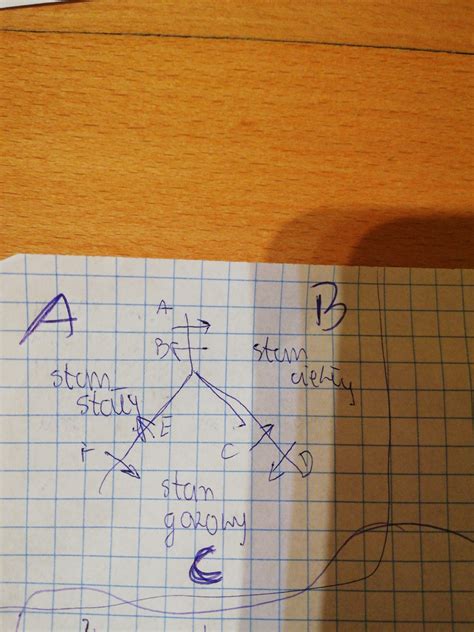 A
A
B
B
stan
ciekły
stan
stały
E
F
C
D
stan
gazowy
C